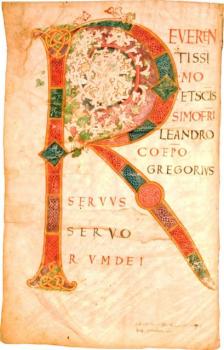 R
EVEREN
TISSI
MO
ETSCIS
SIMOFRI
LEANDRO
COEPO
GREGORIUS
SERVUS
SERVO
RUMDEI